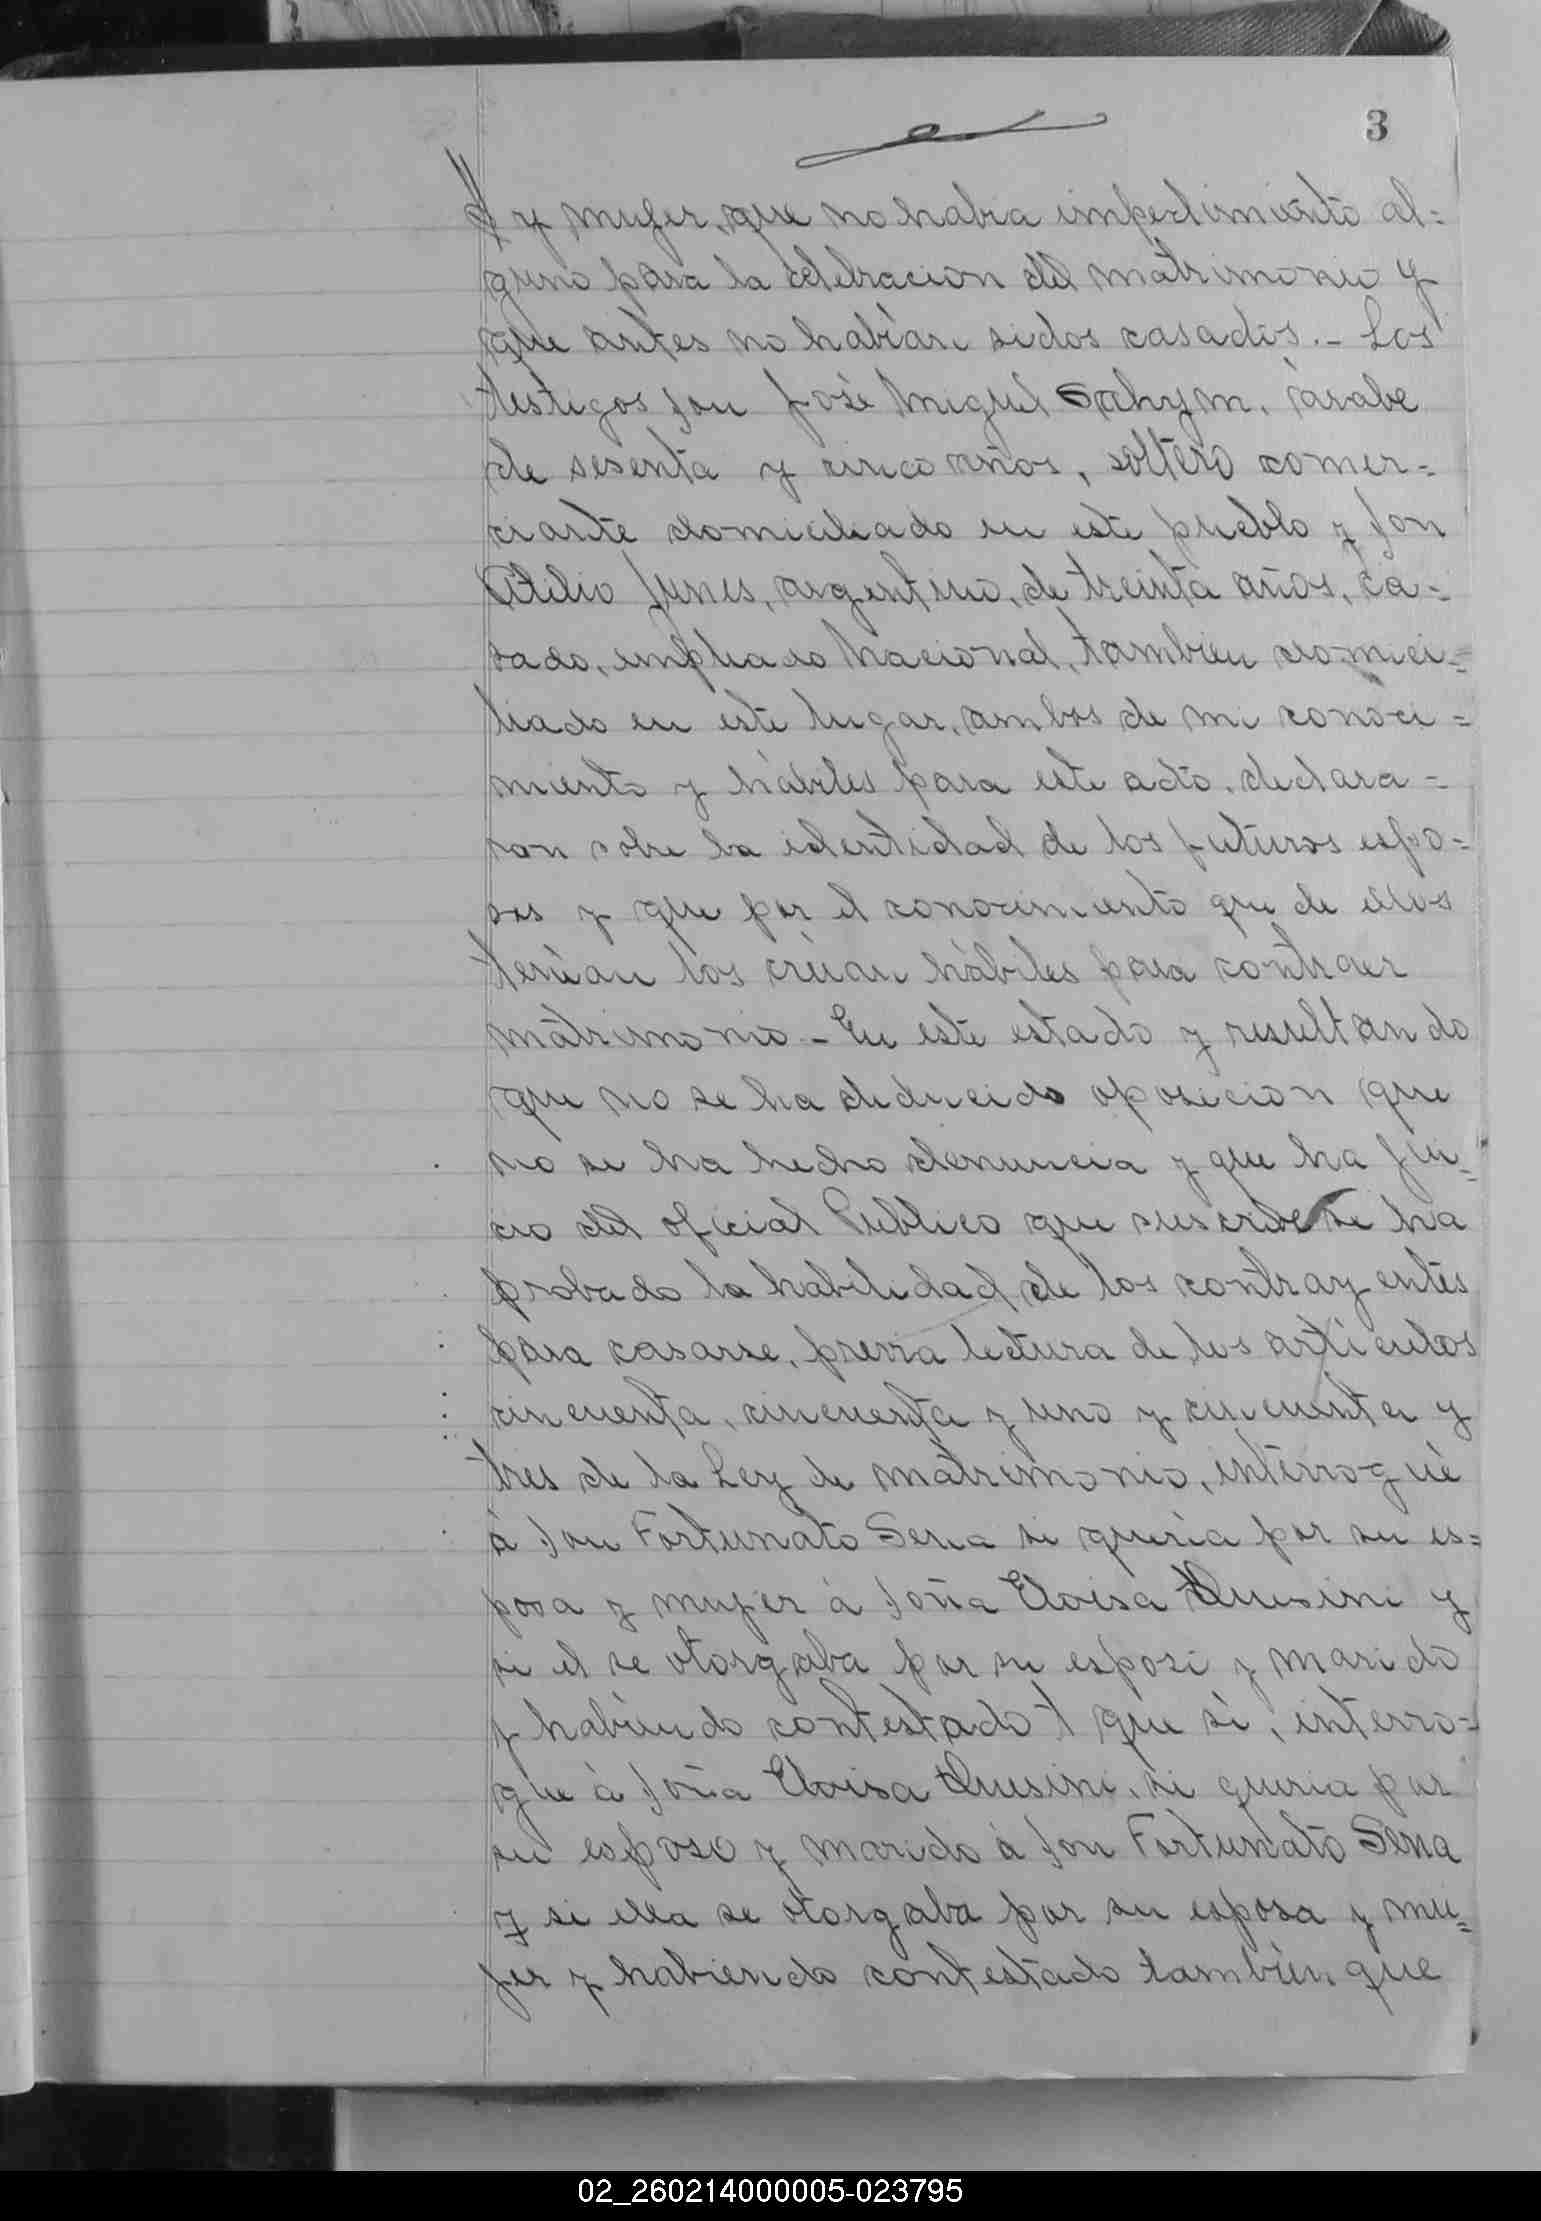 3
y mujer, que no habia impedimiento al=
guno para la celebracion del matrimonio y
que antes no habían sidos casados.- Los
testigos Don José Miguel árabe
de sesenta y cinco años, soltero comer=
ciante domiciliado en este pueblo y Don
Atilio Funes, argentino, de treinta años, ca=
sado, empleado Nacional, tambien domici=
liado en este lugar, ambos de mi conoci=
miento y hábiles para este acto, declara=
ron sobre la identidad de los futuros espo=
sos y que por el conocimiento que de ellos
tenían los creian hábiles para contraer
matrimonio - En este estado y resultando
que no se ha deducido oposicion que
no se ha hecho denuncia y que ha jui=
cio del oficial Publico que suscribe se ha
probado la habilidad de los contrayentes
para casarse, previa lectura de los articulos
cincuenta, cincuenta y uno y cincuenta y
tres de la Ley de matrimonio, interrogué
á Don Fortunato Sena si queria por su es=
posa y mujer á Doña Eloisa y
si el se otorgaba por su esposo y marido
y habiendo contestado que si, interro=
gue á Doña Eloisa si queria por
su esposo y marido á Don Fortunato Sena
y si ella se otorgaba por su esposa y mu=
jer y habiendo contestado tambien que
02_260214000005-023795